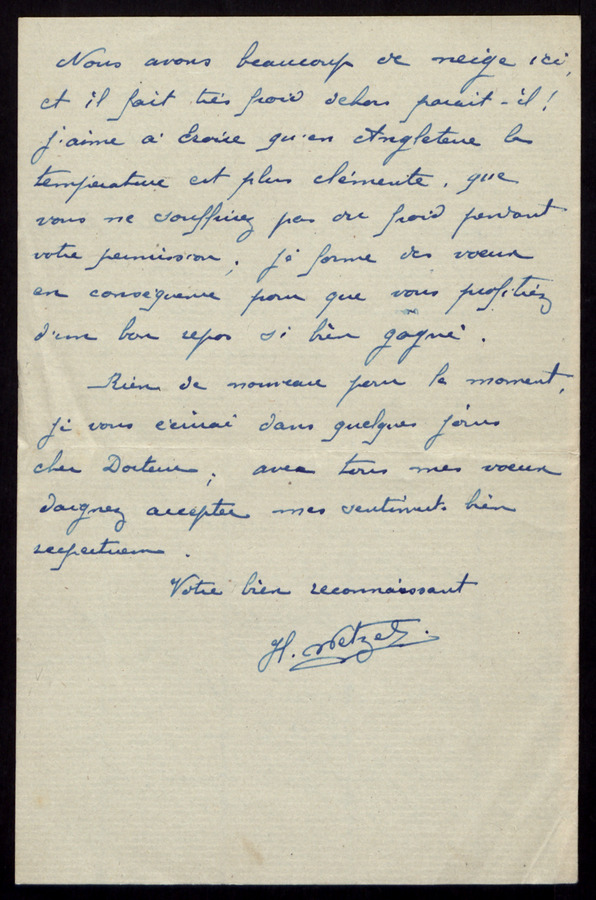 Nous avons beaucoup de neige ici,
et il fait très froid dehors parait-il!
j'aime à croire qu'en Angleterre la
température est plus clémente, que
vous ne souffrirez pas du froid pendant
votre permission; je forme des voeux
en conséquence pour que vous profitiez
d'un bon repos si bien gagné.
Rien de nouveau pour le moment,
je vous écrirai dans quelques jours
cher Docteur; avec tous mes voeux
daignez accepter mes sentiments bien
respectueux.
Votre bien reconnaissant
H. Wetzel.